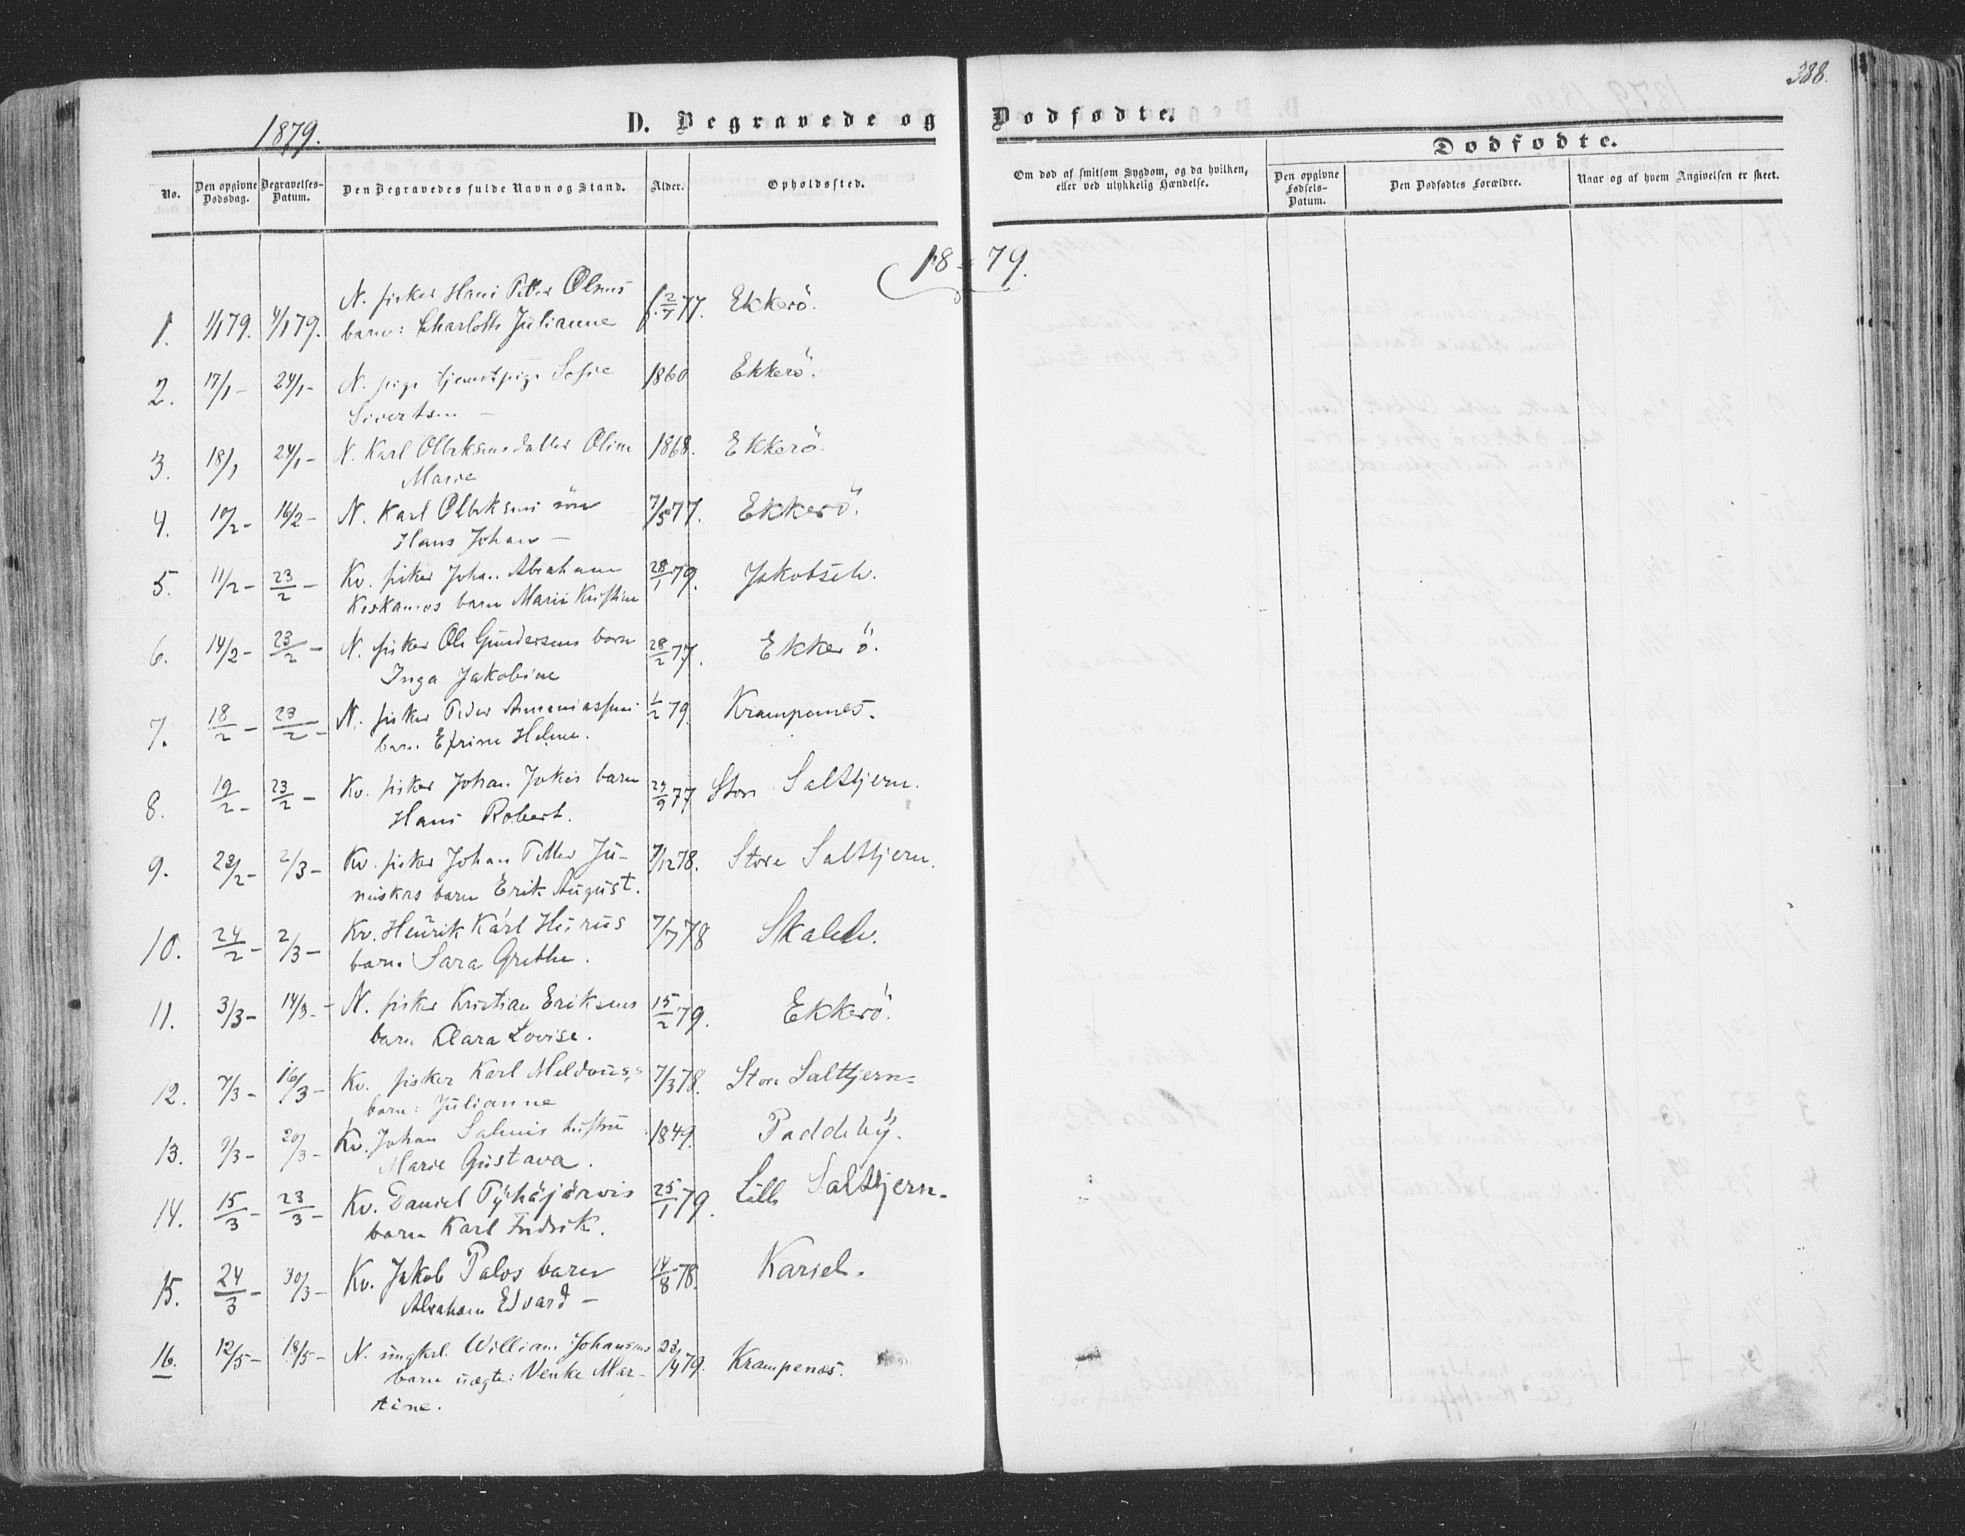 388.
1879.
D. Begravede og Dødfødte.
Dødfødte.
No.
Den opgivne Dødsdag.
Begravelses-Datum.
Den Begravedes fulde Navn og Stand.
Alder.
Opholdssted.
Om død af smitsom Sygdom, og da hvilken,
eller ved ulykkelig Hændelse.
Den opgivne Fødsels-Datum.
Den Dødfødtes Forældre.
Naar og af hvem Angivelsen er skeet.
1879.
1. 1/1 79. 4/1 79. N. fisker Hans Petter Olsens f. 2/7 77. Ekkerö.
barn: Charlotte Julianne
2. 17/1 - 24/1 - N. pige tjenestpige Sofie 1860 Ekkerö.
Sivertsen -
3. 18/1 24/1 - N. Karl Olbeksens datter Oline 1868. Ekkerö.
Marie
4. 10/2 - 16/2 - N. Karl Olbeksens sön 7/5 77. Ekkerö.
Hans Johan -
5. 11/2 - 23/2 - Kv. fisker Johan Abraham 28/1 79. Jakobselv.
barn Marie Kristine
6. 14/2 - 23/2 - N. fisker Ole Gundersens barn 28/2 77. Ekkerö.
Inga Jakobine
7. 18/2 - 23/2 - N. fisker Peder Ananiassens 1/2 79. Krampenes.
barn Efrine Helene.
8. 19/2 - 23/2 - Kv. fisker Johan Jokis barn 29/9 77 Store Saltfjern.
Hans Robert.
9. 23/2 - 2/3 - Kv. fisker Johan Petter Ju- 7/12 78. Store Saltfjern.
niskas barn Erik August.
10. 24/2 - 2/3 - Kv. Henrik Karl Hurus 7/7 78 Skalelv.
barn Sara Grethe.
11. 3/3 - 14/3 - N. fisker Kristian Eriksens 15/2 79. Ekkerö.
barn Clara Lovise.
12. 7/3 - 16/3 - Kv. fisker Karl Meldous's 7/3 78. Store Saltfjern -
barn: Julianne
13. 9/3 - 20/3 - Kv. Johan Salmis hustru 1849. Paddeby.
Marie Gustava.
14. 15/3 - 23/3 - Kv. Daniel Pyhäjärvis 25/1 79. Lille Saltfjern -
barn Karl Fredrik.
15. 24/3 - 30/3 - Kv. Jakob Palos barn 14/8 78. Kariel.
Abraham Edvard -
16. 12/5 - 18/5 - N. ungkrl. William Johansens 23/4 79. Krampenes.
barn uægte: Venke Mar-
tine.